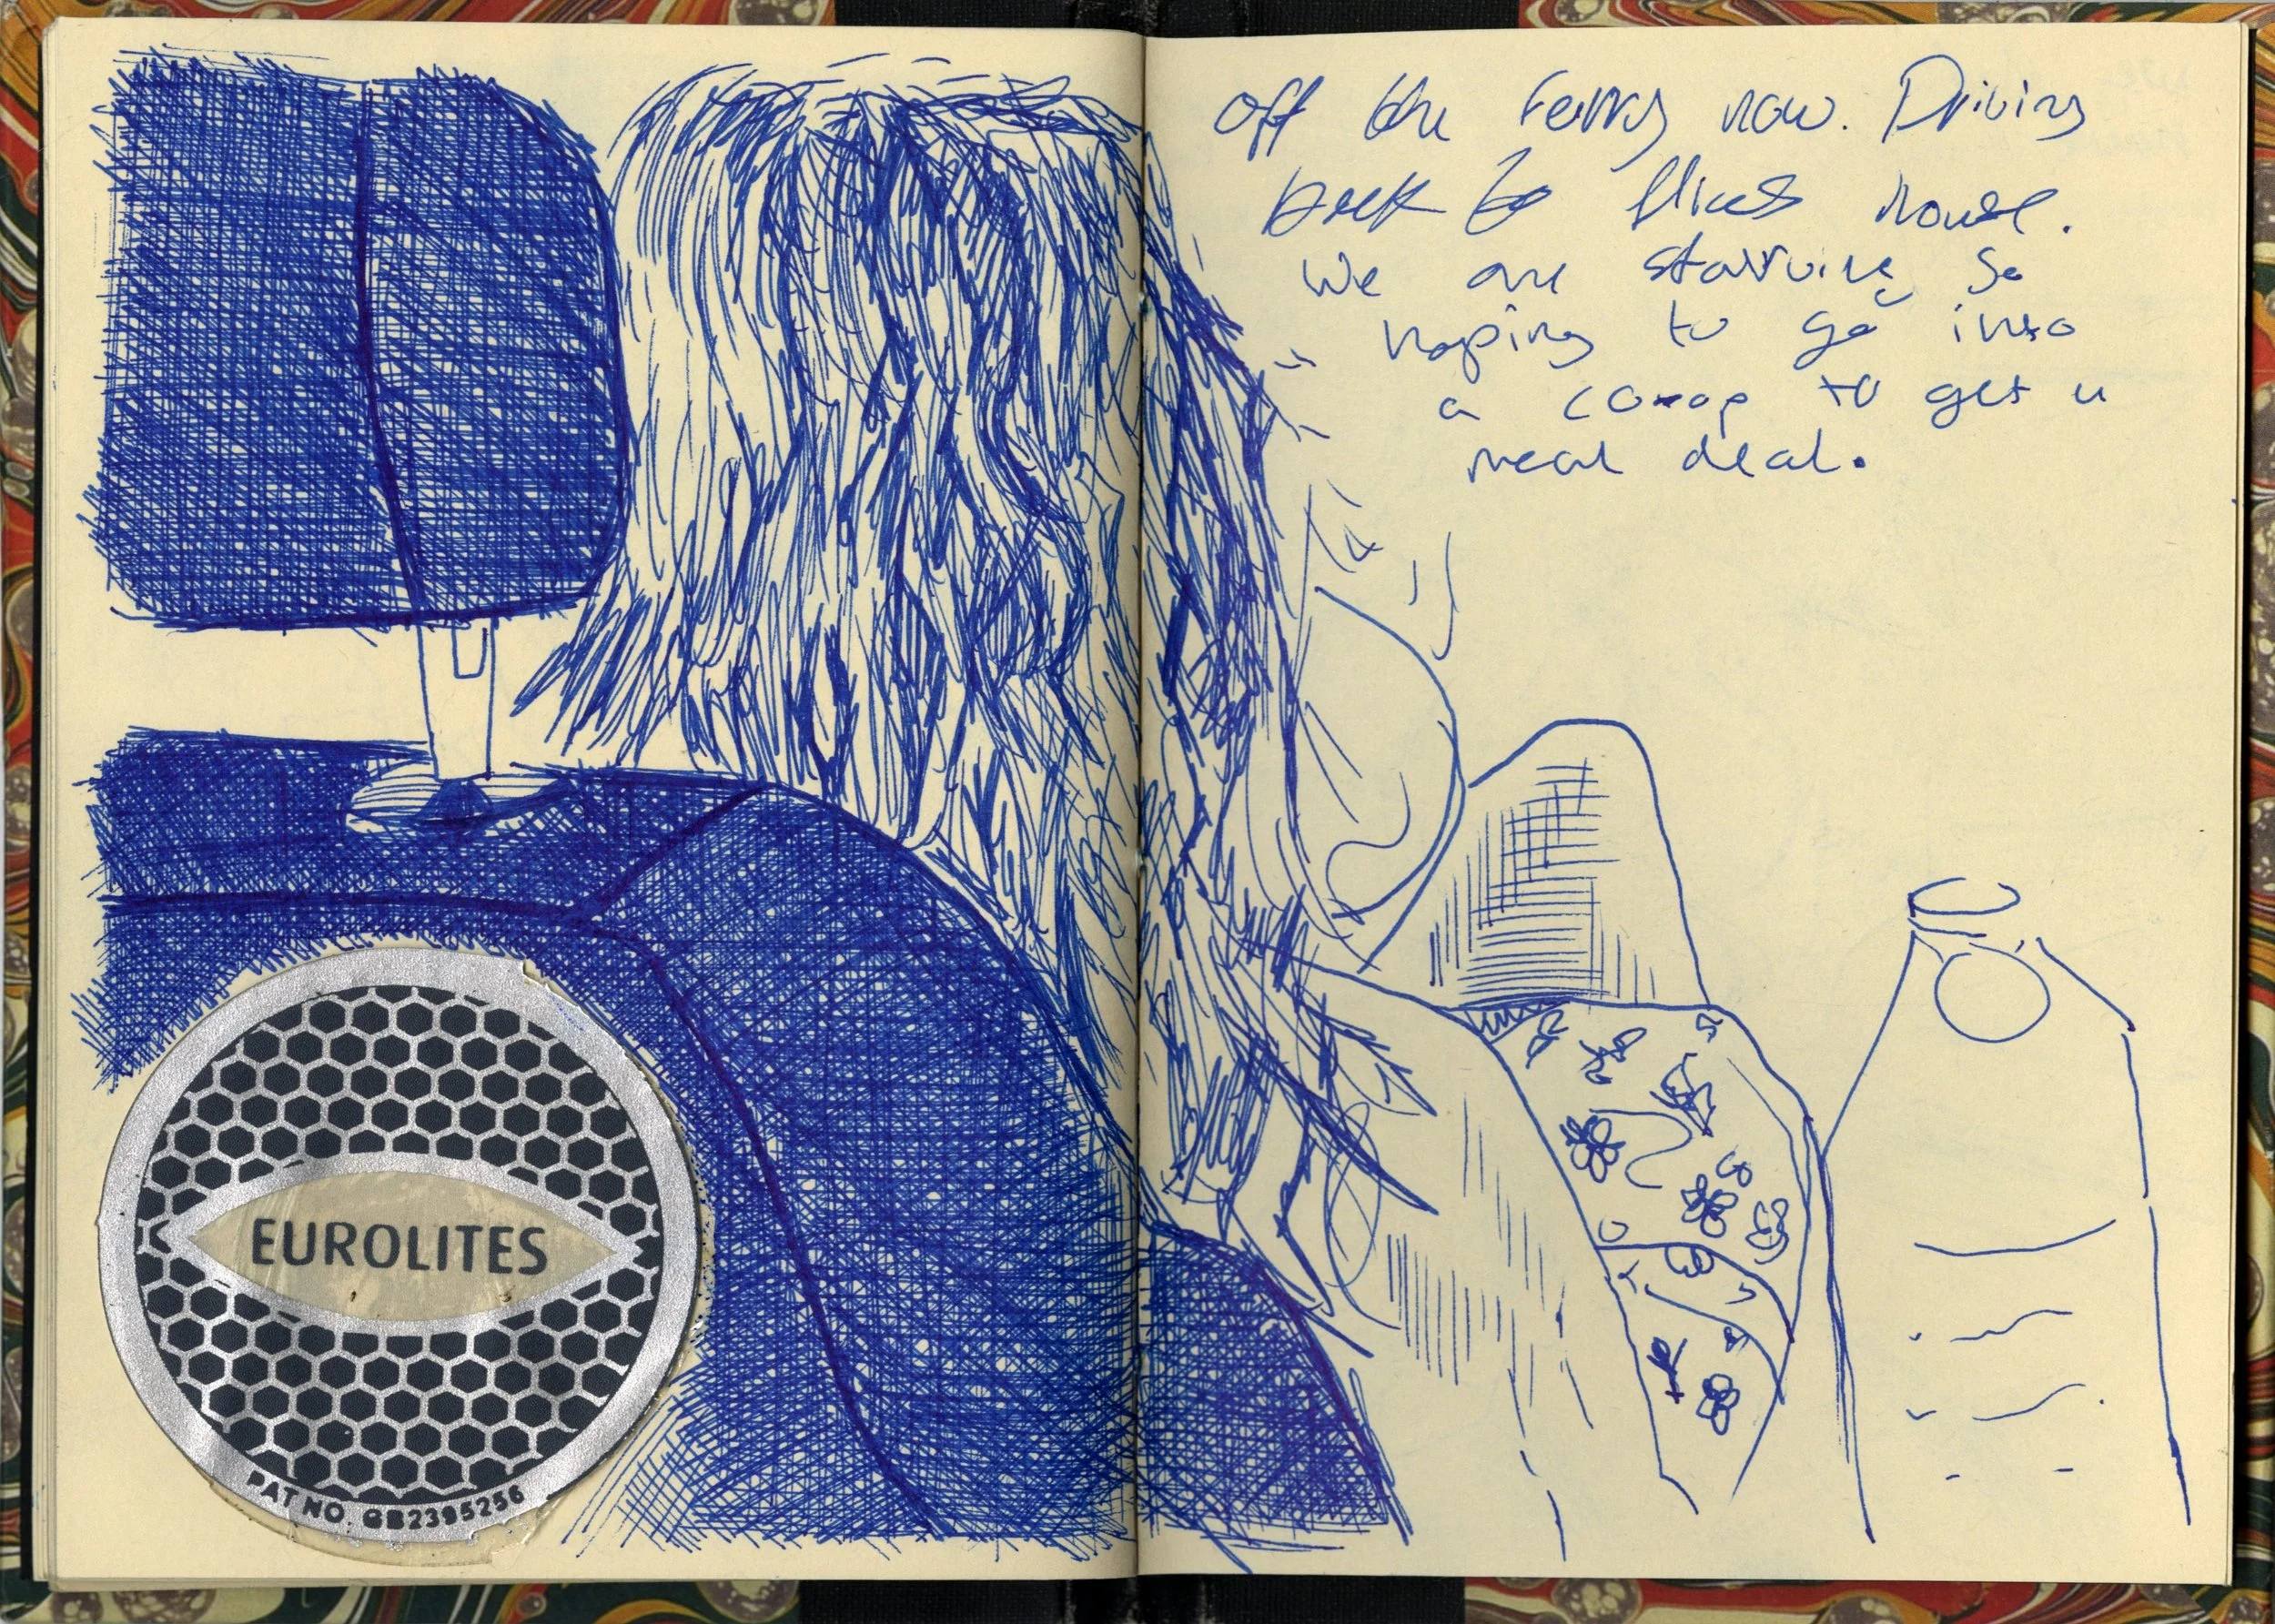 EUROLITES
PAT NO. GB2395256
off the ferry now. Driving
back to house.
We are starving so
hoping to go into
a co-op to get a
meal deal.